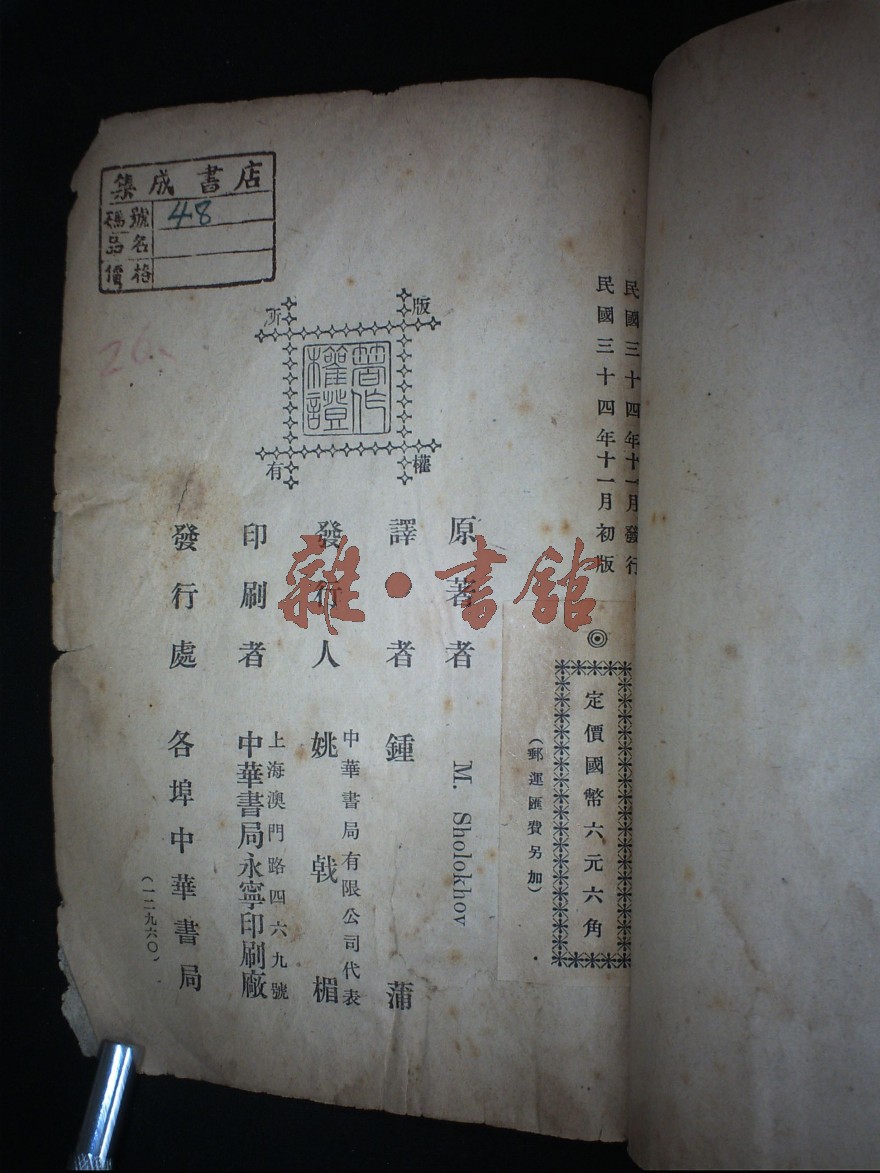 民國三十四年十一月發行
民國三十四年十一月初版
◎
定價國幣六元六角
（郵運匯費另加）
版權所有
著作權證
原著者 M. Sholokhov
譯者 鍾蒲
發行人 中華書局有限公司代表 姚戟楣
印刷者 上海澳門路四六九號 中華書局永寧印刷廠
發行處 各埠中華書局
（一二九六〇）
集成書店
號碼 48
品名
價格
26.
雜·書館